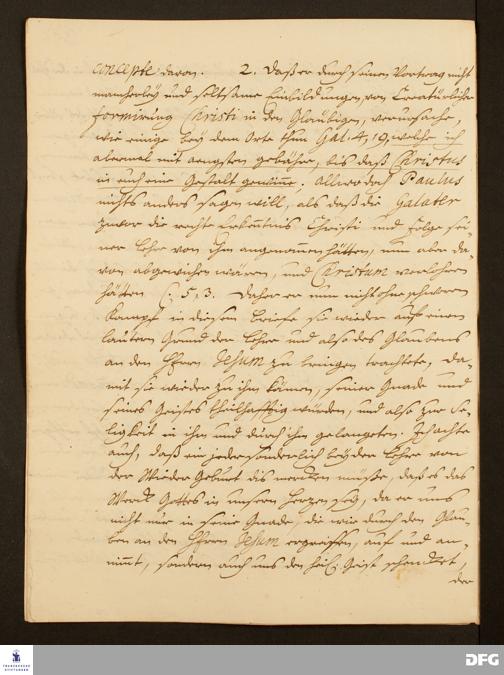 concepte davon. 2. Daß er durch seinen Vortrag nicht
mancherley und seltsame Einbildungen von Creatürlicher
formirung Christi in den Gläubigen, verursache,
wie einige bey dem Orte thun Gal. 4, 19, welche ich
abermal mit aengsten gebähre, bis daß Christus
in euch eine Gestalt gewinne. Allwo doch Paulus
nichts anders sagen will, als daß die Galater
zuvor die rechte Erkäntnis Christi und folge sei-
ner Lehre von ihm angenommen hätten, nun aber da-
von abgewichen wären, und Christum verlohren
hätten C. 5, 3. Daher er nun nicht ohne schweren
Kampf in diesem Briefe sie wieder auf einen
lautern Grund der Lehre und also des Glaubens
an den Herrn Jesum zu bringen trachtete, da-
mit sie wieder zu ihm kämen, seiner Gnade und
seines Geistes theilhafftig würden, und also zur Se-
ligkeit in ihm und durch ihn gelangeten. Ich achte
auch, daß ein jeder sonderlich bey der Lehre von
der Wieder Geburt dis mercken müße, daß es das
Werck Gottes in unserm Herzen sey, da er uns
nicht nur in seine Gnade, die wir durch den Glau-
ben an den Herrn Jesum ergreiffen, auf und an-
nimmt, sondern auch uns den heil. Geist schencket,
der
FRANCKESCHE
STIFTUNGEN
DFG